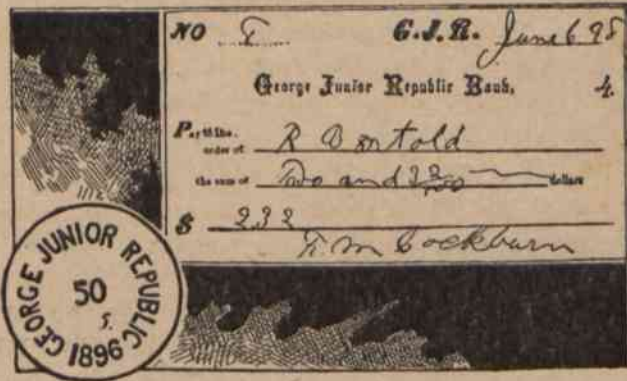 NO G.J.R. June 6 98
George Junior Republic Bank, 4.
Pay to the order of R
the sum of Two and 32/100 dollars
$ 232
Cockburn
GEORGE JUNIOR REPUBLIC
50
s.
1896